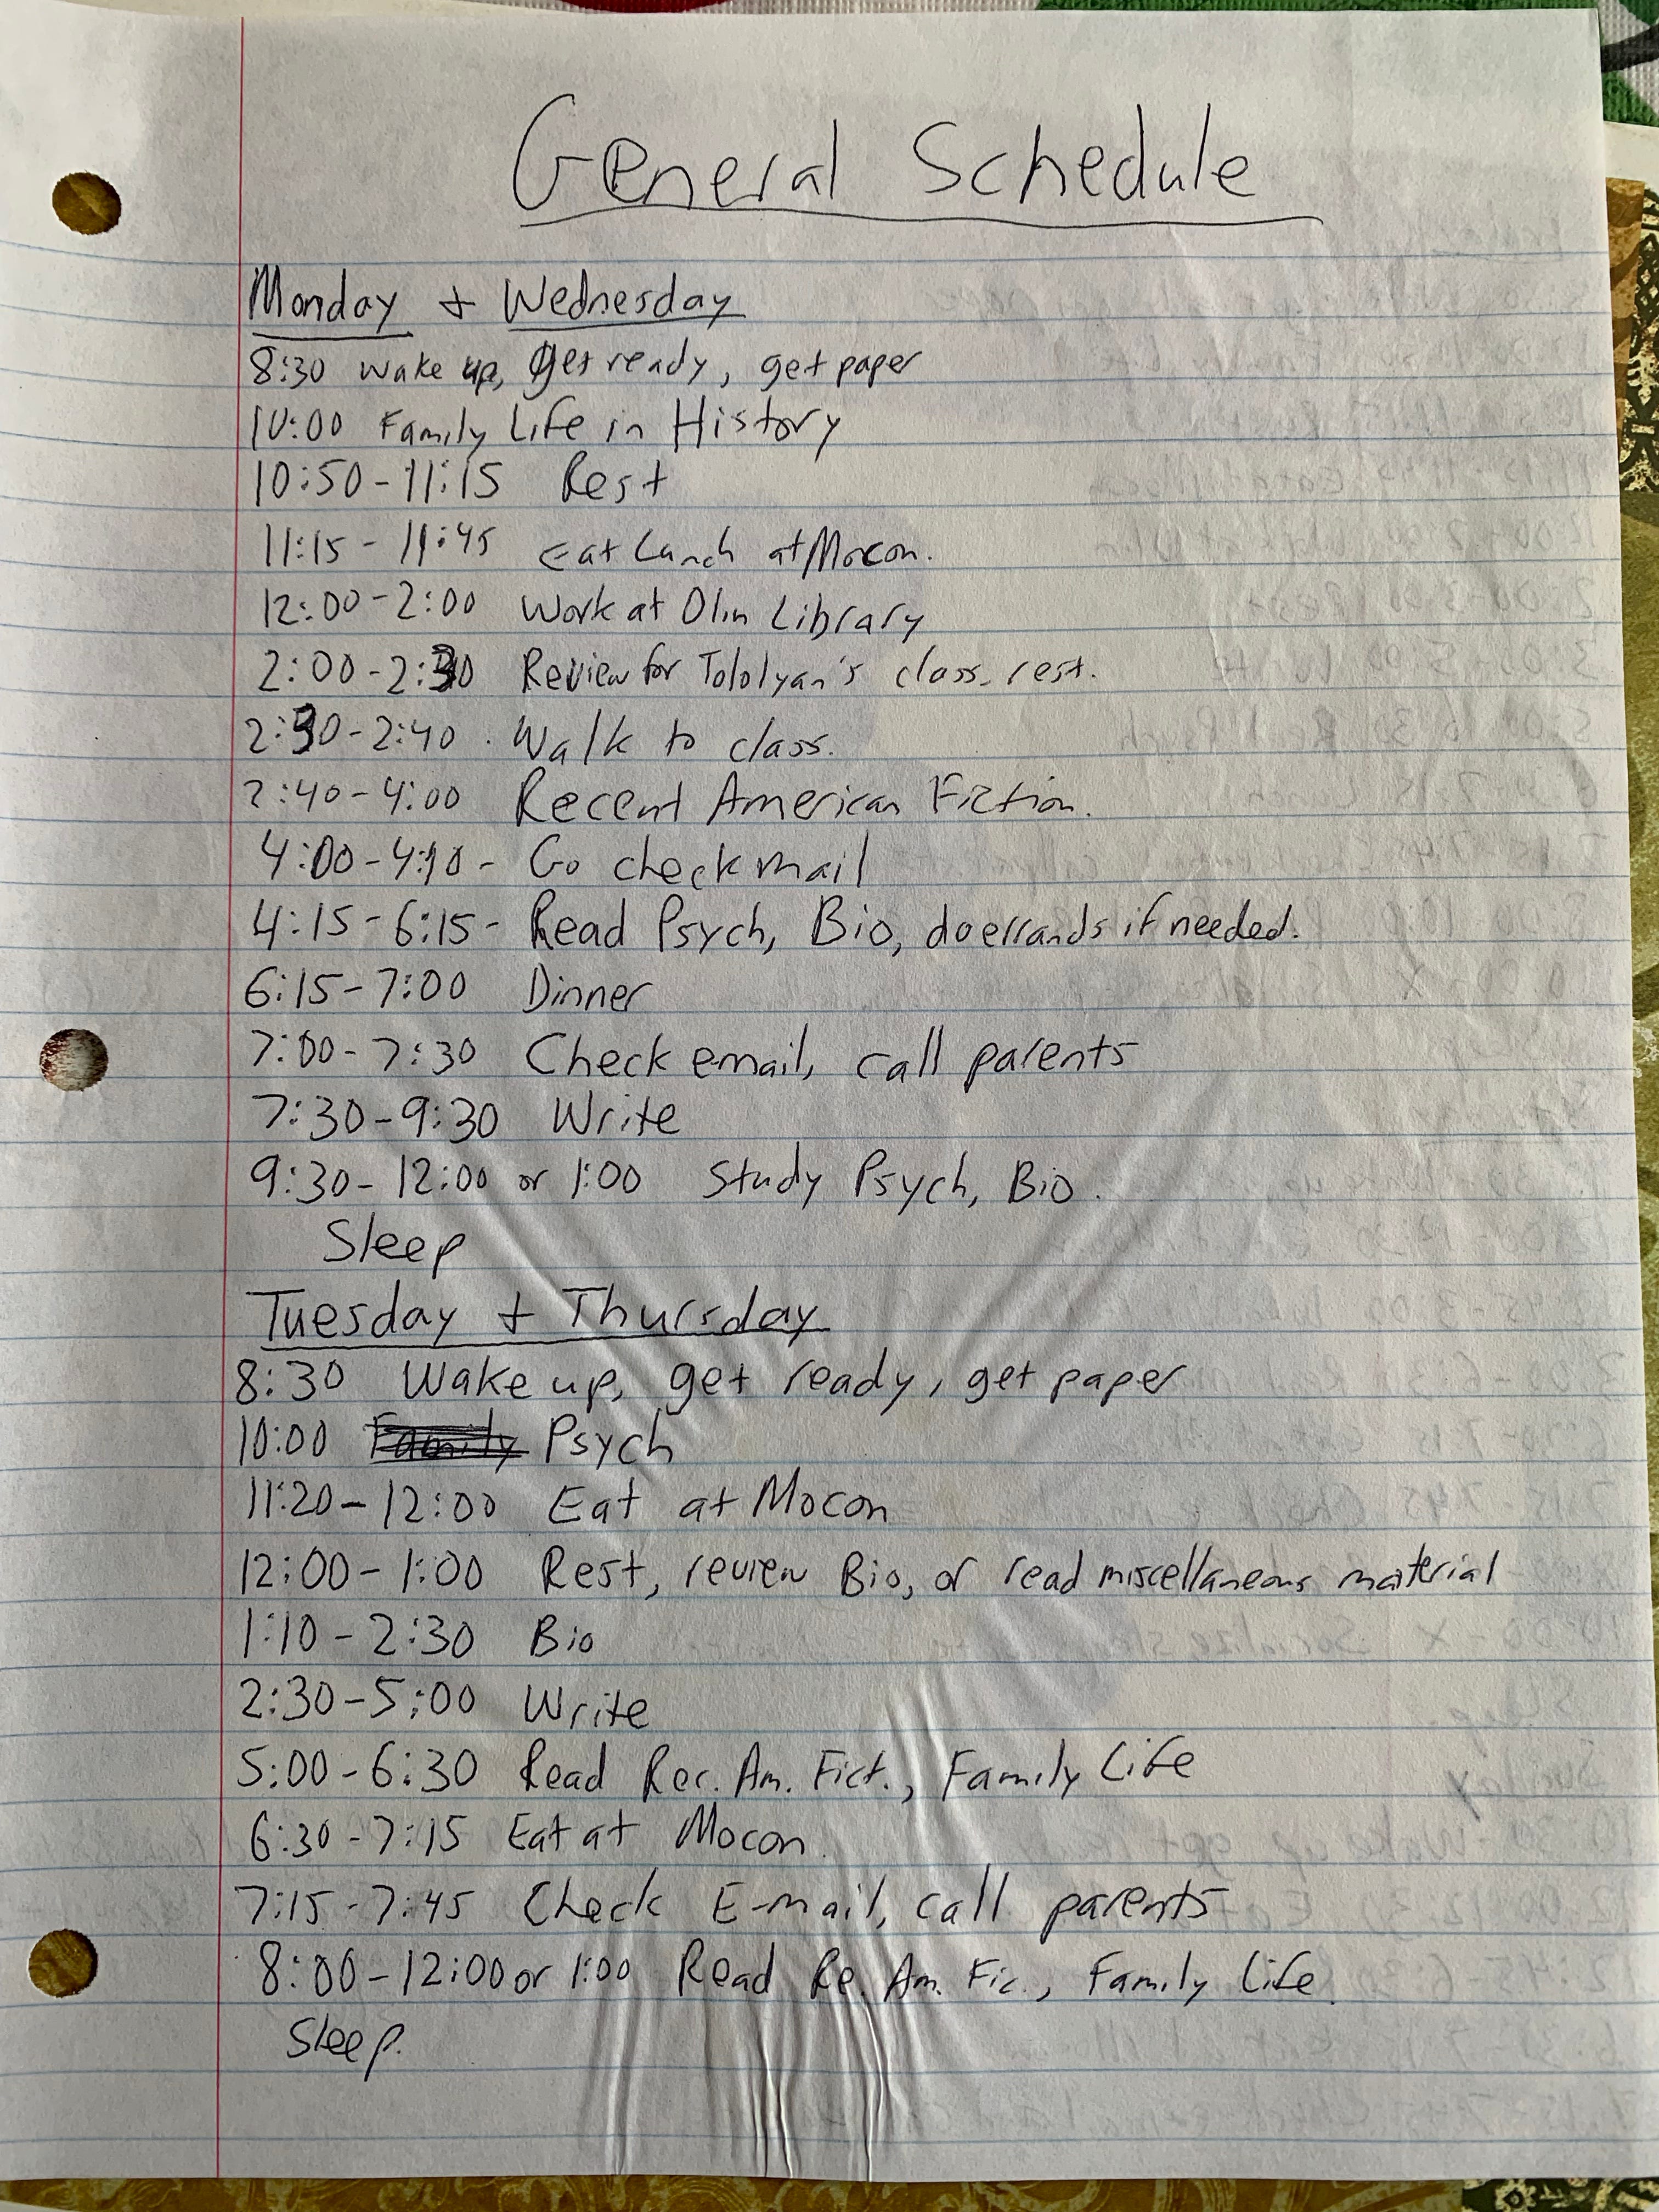 General Schedule
Monday + Wednesday
8:30 Wake up, get ready, get paper
10:00 Family Life in History
10:50-11:15 Rest
11:15-11:45 Eat Lunch at Mocon.
12:00-2:00 Work at Olin Library
2:00-2:30 Review for Tololyan's class, rest.
2:30-2:40. Walk to class.
2:40-4:00 Recent American Fiction.
4:00-4:10- Go check mail
4:15-6:15- Read Psych, Bio, do errands if needed.
6:15-7:00 Dinner
7:00-7:30 Check email, call parents
7:30-9:30 Write
9:30-12:00 or 1:00 Study Psych, Bio.
Sleep
Tuesday + Thursday
8:30 Wake up, get ready, get paper
10:00 Family Psych
11:20-12:00 Eat at Mocon
12:00-1:00 Rest, review Bio, or read miscellaneous material
1:10-2:30 Bio
2:30-5:00 Write
5:00-6:30 Read Rec. Am. Fict., Family Life
6:30-7:15 Eat at Mocon.
7:15-7:45 Check E-mail, call parents
8:00-12:00 or 1:00 Read Re. Am. Fic., Family Life.
Sleep.